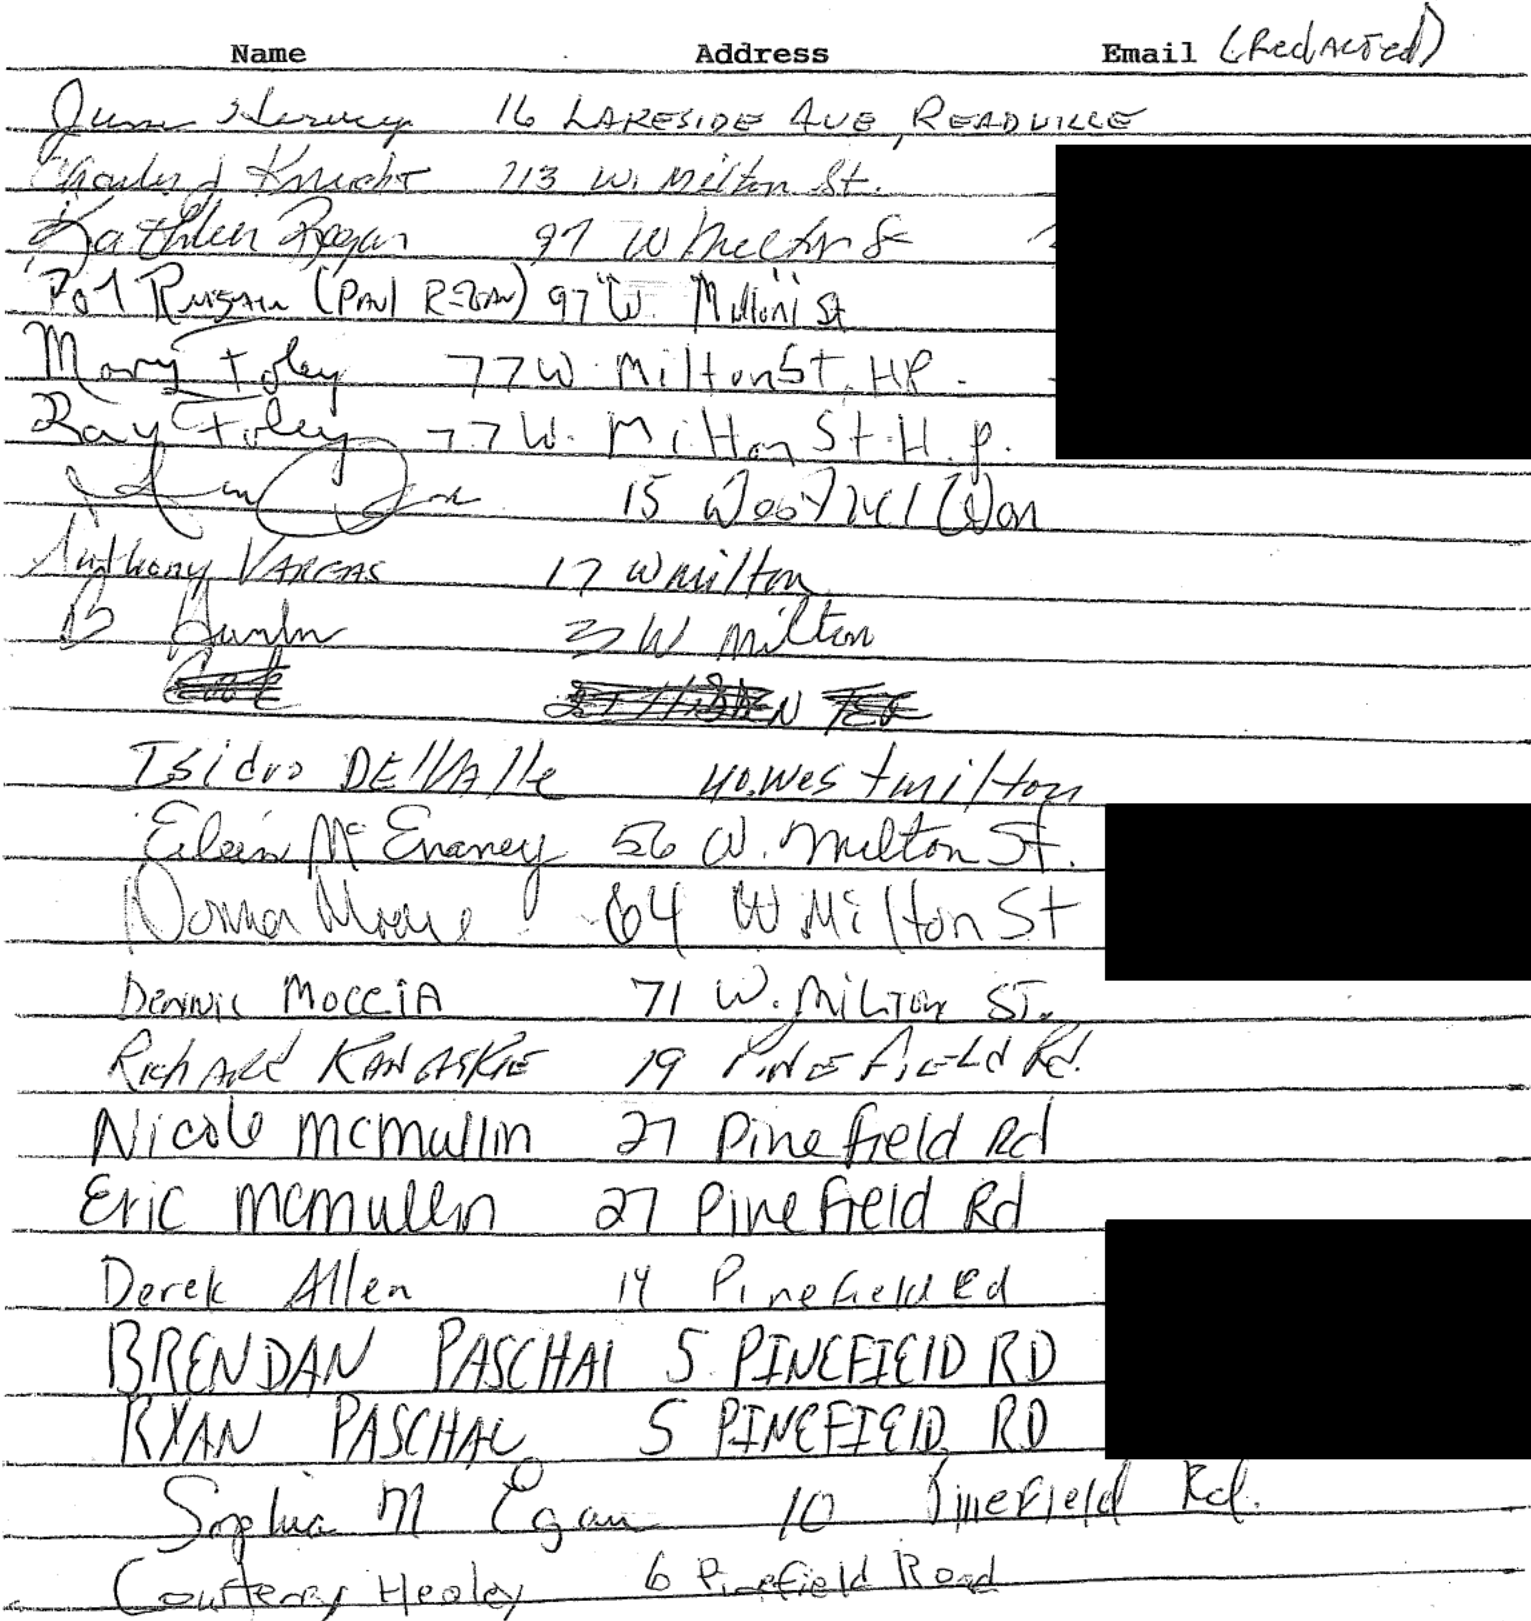 Name Address Email (Redacted)
16 LAKESIDE AVE, READVILLE
Knight 713 W. Milton St.
Kathleen Regan 97 W Milton St
(Paul Regan) 97 W. Milton St
Mary Foley 77 W. Milton St. HP.
Ray Foley 77 W. Milton St. H.p.
15
Anthony VARGAS 17 W milton
B 37 W Milton
Isidro DEllVAlle 40 West milton
Eileen McEnaney 56 W. Milton St.
Donna Moore 64 W Milton St
Dennis MocciA 71 W. MiLTon ST.
RichARd KANCASKIE 19 PiNEFiELd Rd.
Nicole mcmullin 27 Pinefield Rd
Eric mcmullin 27 Pinefield Rd
Derek Allen 14 Pinefield Rd
BRENDAN PASCHAl 5 PINEFIElD RD
RYAN PASCHAL 5 PINEFIElD RD
Sophia M Egan 10 Pinefield Rd.
Courteney Healey 6 Pinefield Road